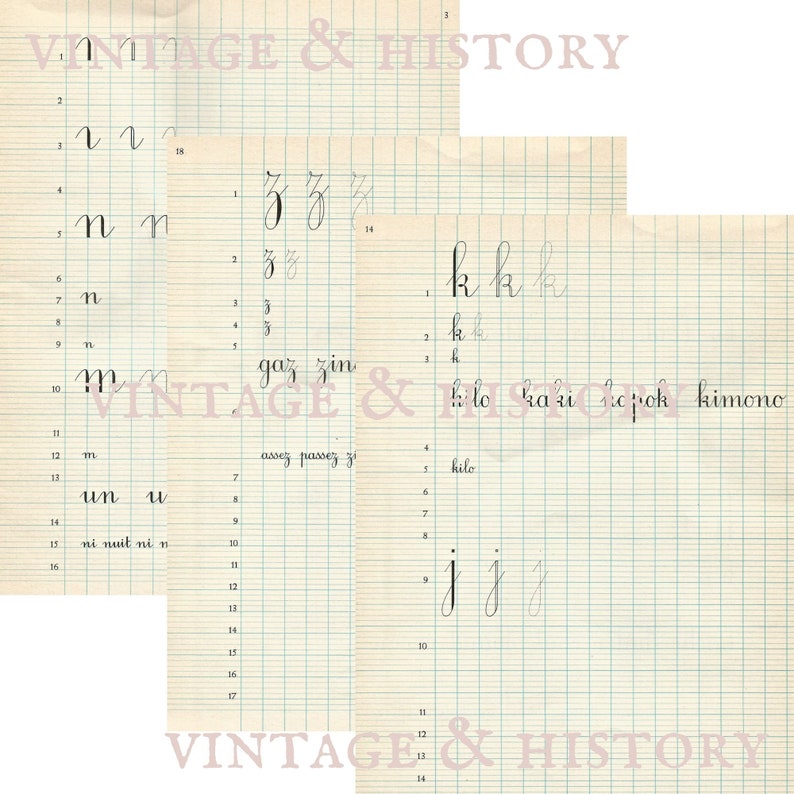 3
VINTAGE & HISTORY
1
2
3
4
5 n
6
7 n
8
9 n
10 m
11
12 m
13 un
14
15 ni nuit ni
16
18
1 z z z
2 z z
3 z
4 z
5
gaz
VINTAGE & HISTORY
6
assez passez
7
8
9
10
11
12
13
14
15
16
17
14
1 k k k
2 k k
3 k
kilo kaki kapok kimono
4
5 kilo
6
7
8
9 j j j
10
11
12
13
14
VINTAGE & HISTORY